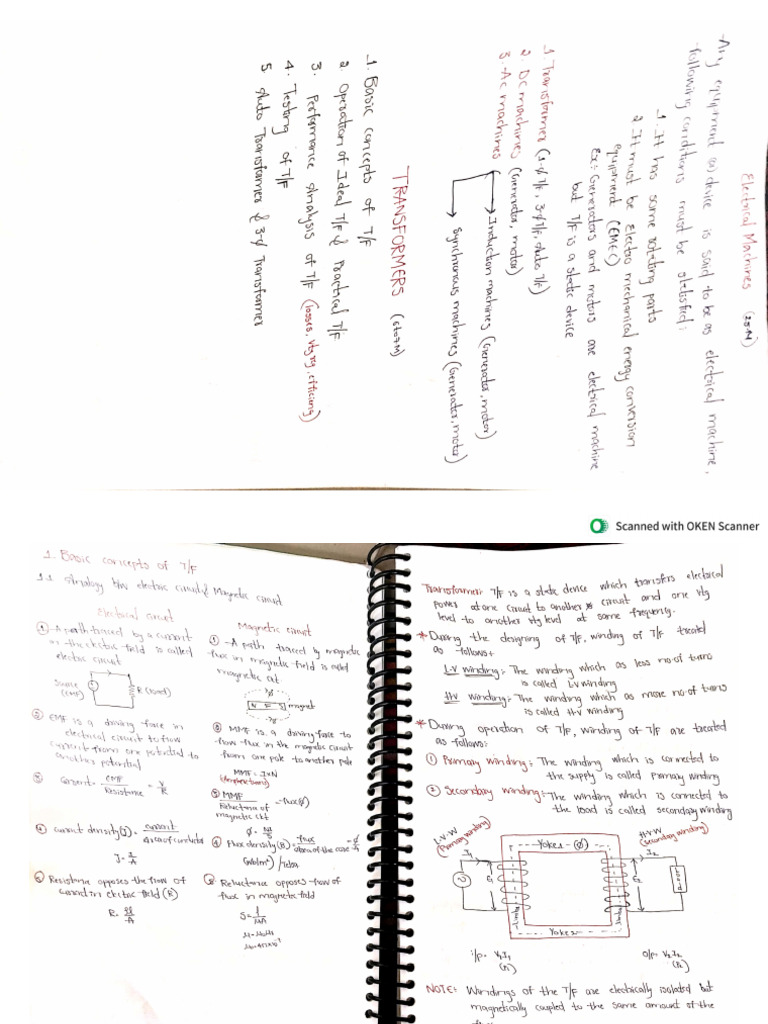 Electrical Machines (25-M)
-Any equipment (or) device is said to be as electrical machine,
following conditions must be satisfied:
1. It has some rotating parts
2. It must be Electro mechanical energy conversion
equipment (EMEC)
Ex:- Generators and motors are electrical machine
but T/F is a static device
1. Transformer (1-φ T/F, 3-φ T/F Auto T/F)
2. DC machines (Generator, motor)
3. AC machines
→ Induction machines (Generator, motor)
→ Synchronous machines (Generator, motor)
TRANSFORMERS (6to7M)
1. Basic concepts of T/F
2. Operation of Ideal T/F & Practical T/F
3. Performance Analysis of T/F (losses, vtg rg, efficiency)
4. Testing of T/F
5. Auto Transformer & 3-φ Transformer
Scanned with OKEN Scanner
1. Basic concepts of T/F
1.1 Analogy b/w electric circuit & Magnetic circuit
Electrical circuit
① -A path traced by a current
in the electric field is called
electric circuit
Source
(EMF)
R (Load)
② EMF is a driving force in
electrical circuit to flow
current from one potential to
another potential
③ Current = EMF/Resistance = V/R
④ Current density(J) = current/Area of conductor
J = I/A
⑤ Resistance opposes the flow of
current in electric field (R)
R = ρl/A
Magnetic circuit
① -A path traced by magnetic
flux in magnetic field is called
magnetic ckt.
N S magnet
② MMF is a driving force to
flow flux in the magnetic circuit
from one pole to another pole
MMF = I×N
(Ampere turns)
③ MMF/Reluctance of magnetic ckt = flux(φ)
④ Flux density(B) = flux/area of the core = φ/A
(wb/m²) / Tesla
⑤ Reluctance opposes flow of
flux in magnetic field
Transformer: T/F is a static device which transfers electrical
power at one circuit to another circuit and one vtg
level to another vtg level at same frequency.
* During the designing of T/F, winding of T/F treated
as follows:
L.V winding:- The winding which as less no. of turns
is called L.V winding
H.V winding:- The winding which as more no. of turns
is called H.V winding
* During operation of T/F, winding of T/F are treated
as follows:
① Primary winding:- The winding which is connected to
the supply is called Primary winding
② Secondary winding:- The winding which is connected to
the load is called secondary winding
L.V.W
(Primary winding)
H.V.W
(Secondary winding)
I₁
I₂
Yokes - (φ)
Limbs
Limbs
Load
Yokes
i/p = V₁I₁
(P₁)
o/p = V₂I₂
(P₂)
NOTE: Windings of the T/F are electrically isolated but
magnetically coupled to the same amount of the